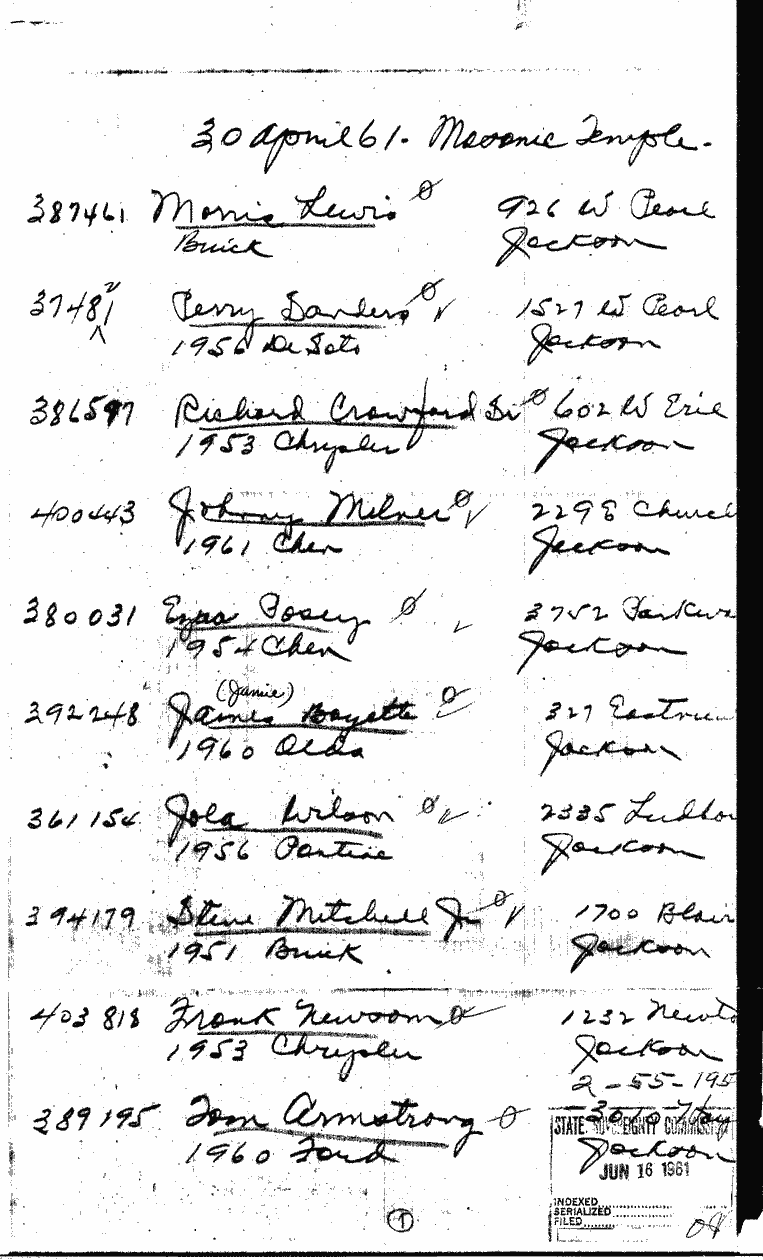 30 April 61. Masonic Temple.
387461 Morris Lewis 926 W Pearl
Buick Jackson
37481 Perry Sanders 1527 W Pearl
1956 De Soto Jackson
386597 Richard Crawford Sr 602 W Erie
1953 Chrysler Jackson
400443 Johnny Milner 229 E Church
1961 Chev Jackson
380031 Ezra Posey 3752 Parkwa
1954 Chev Jackson
(Jamie)
392248 James Boyette 327 Eastview
1960 Olds Jackson
361154 Jola Wilson 2335 Ludlow
1956 Pontiac Jackson
394179 Steve Mitchell Jr 1700 Blair
1951 Buick Jackson
403818 Frank Newsom 1232 Newto
1953 Chrysler Jackson
2-55-195
389195 Tom Armstrong 3010
1960 Ford Jackson
STATE SOVEREIGNTY COMMISSION
JUN 16 1961
INDEXED
SERIALIZED
FILED
1